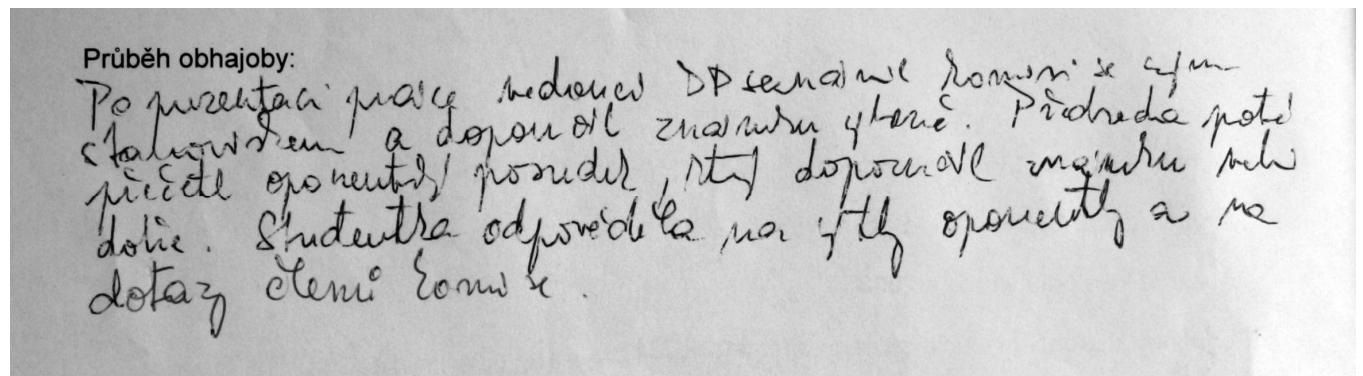 Průběh obhajoby:
Po prezentaci práce vedoucí DP seznámil komisi se svým
stanoviskem a doporučil známku výborně. Předseda poté
přečetl oponentský posudek, který doporučil známku velmi
dobře. Studentka odpověděla na výtky oponentky a na
dotazy členů komise.